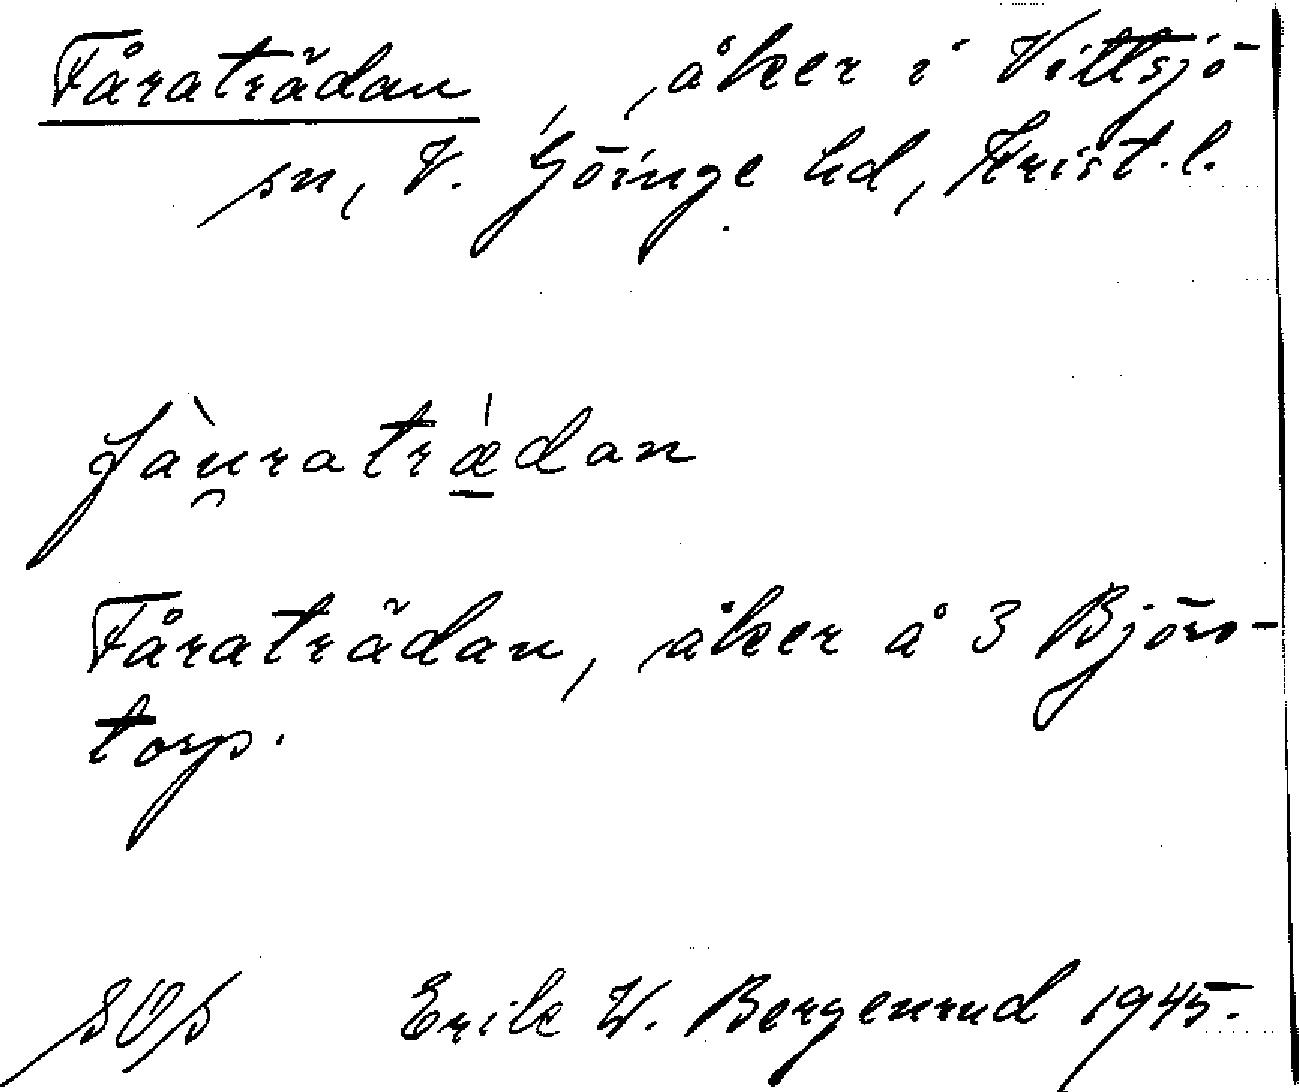 Fåraträdan, åker i Vittsjö
sn, V. Göinge hd, Krist. l.
fàu̯ratrǽ̱dan
Fåraträdan, åker å 3 Björs-
torp.
Erik W. Bergenrud 1945.